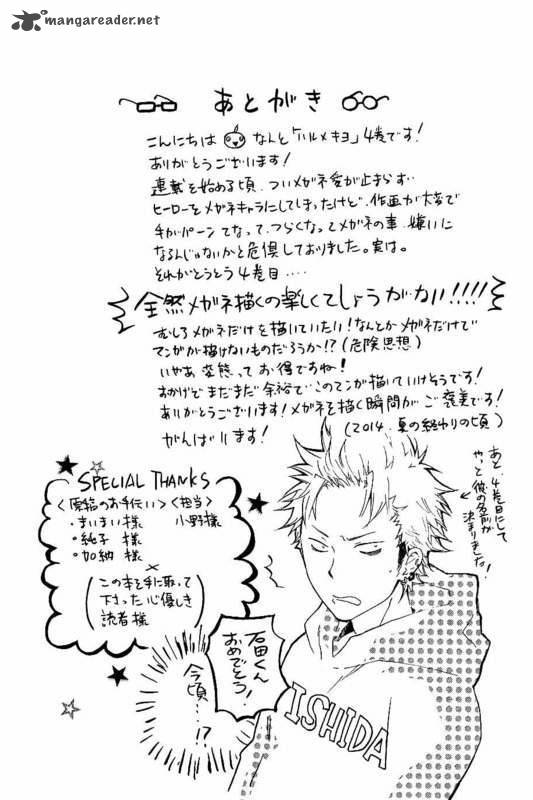 mangareader.net
あとがき
こんにちは なんと「ハルメキヨ」4巻です!
ありがとうございます!
連載を始める頃、ついメガネ愛が止まらず…
ヒーローをメガネキャラにしてしまったけど、作画が大変で
手がパーンてなって、つらくなってメガネの事、嫌いに
なるんじゃないかと危惧しておりました。実は。
それがとうとう4巻目‥‥
全然メガネ描くの楽しくてしょうがない!!!!
むしろメガネだけを描いていたい!なんとかメガネだけで
マンガが描けないものだろうか!?(危険思想)
いやあ変態ってお得ですね!
おかげでまだまだ余裕でこのマンガ描いていけそうです!
ありがとうございます!メガネを描く瞬間がご褒美です!
がんばります!
(2014.夏の終わりの頃)
あと、4巻目にして
やっと彼の名前が
決まりました!
SPECIAL THANKS
<原稿のお手伝い>
・まいまい様
・純子様
・加納様
<担当>
小野様
×
(この本を手に取って
下さった心優しき
読者様)
石田くん
おめでとう!
今頃…!?
ISHIDA